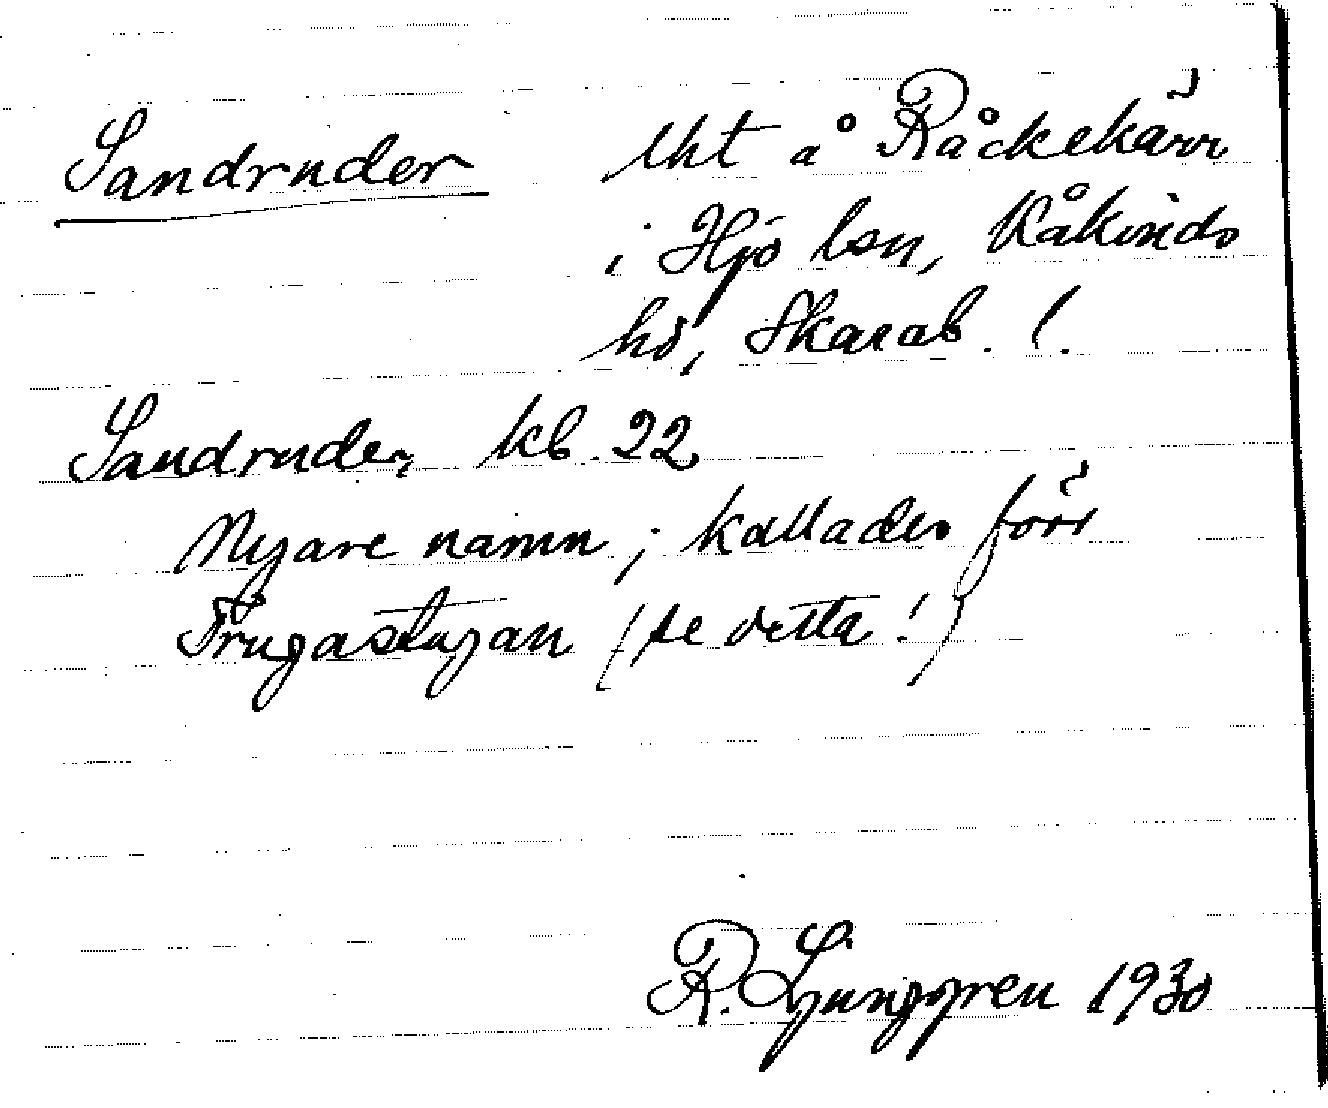 Sandruder lht å Råckekärr
i Hjo lsn, Kåkinds
hd, Skarab. l.
Sandruder kb. 22
Nyare namn; kallades förr
Trugastugan (se detta!)
R. Ljunggren 1930